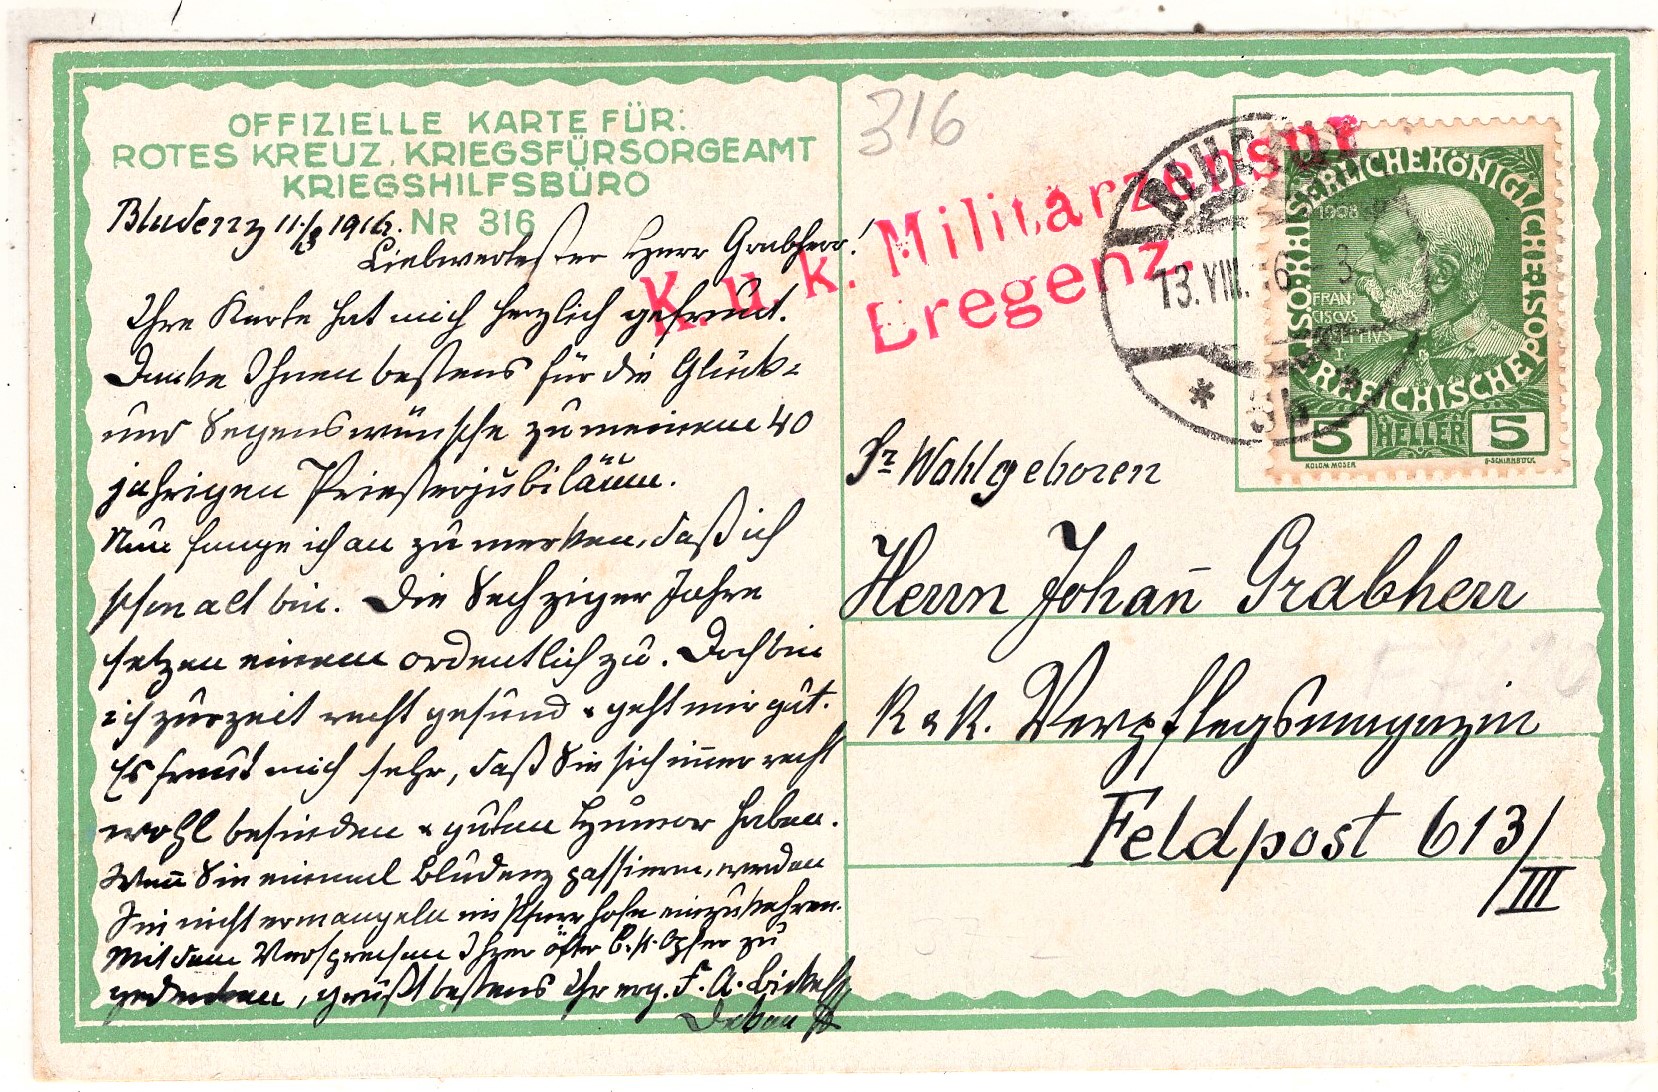 OFFIZIELLE KARTE FÜR:
ROTES KREUZ, KRIEGSFÜRSORGEAMT
KRIEGSHILFSBÜRO
NR 316
Bludenz 11./8 1916.
Liebwertester Herr Grabherr!
Ihre Karte hat mich herzlich gefreut.
Danke Ihnen bestens für die Glück-
und Segenswünsche zu meinem 40
jährigen Priesterjubiläum.
Nun fange ich an zu merken, daß ich
schon alt bin. Die Sechziger Jahre
setzen einem ordentlich zu. Doch bin
ich zurzeit recht gesund & geht mir gut.
Es freut mich sehr, daß Sie sich im̄er recht
wohl befinden & guten Humor haben.
Wen̄ Sie einmal Bludenz passieren, werden
Sie nicht ermangeln im Pfarrhofe einzukehren.
Mit dem Versprechen Ihrer öfter b. hl. Opfer zu
gedenken, grüßt bestens Ihr erg. F. A. Bickel
Dekan
316
K. u. k. Militärzensur
Bregenz.
BLUDENZ
13. VIII. 16 - 3
* 3b *
KAISERLICHE KÖNIGLICHE ÖSTERREICHISCHE POST
1908
FRAN:
CISCUS
JOSEPHUS
I.
5 HELLER 5
KOLOM. MOSER
F. SCHIRNBÖCK
Sr Wohlgeboren
Herrn Johan̄ Grabherr
K & K. Verpflegsmagazin
Feldpost 613/
/III